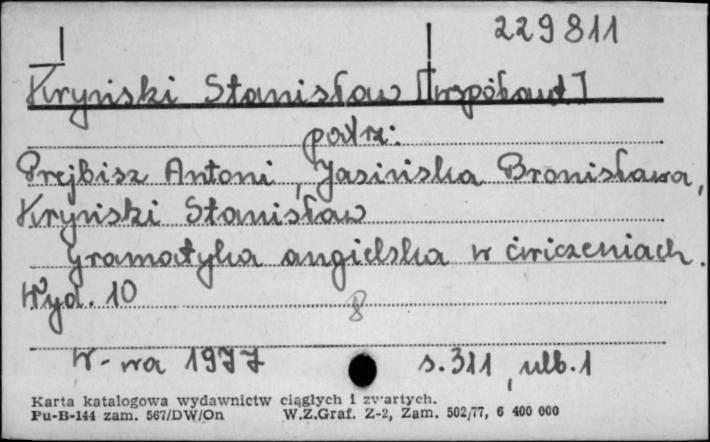 229811
Kryński Stanisław [współaut.]
patrz:
Prejbisz Antoni, Jasińska Bronisława,
Kryński Stanisław
Gramatyka angielska w ćwiczeniach.
Wyd. 10
8
W-wa 1977 s. 311, nlb. 1
Karta katalogowa wydawnictw ciągłych i zwartych.
Pu-B-144 zam. 567/DW/On W.Z.Graf. Z-2, Zam. 502/77, 6 400 000